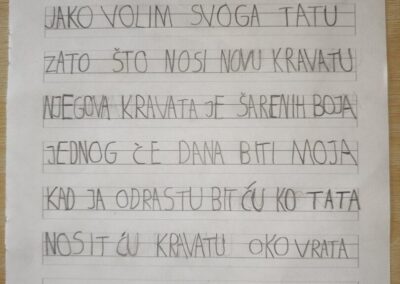 JAKO VOLIM SVOGA TATU
ZATO ŠTO NOSI NOVU KRAVATU
NJEGOVA KRAVATA JE ŠARENIH BOJA
JEDNOG ČE DANA BITI MOJA
KAD JA ODRASTU BIT ĆU KO TATA
NOSIT ĆU KRAVATU OKO VRATA